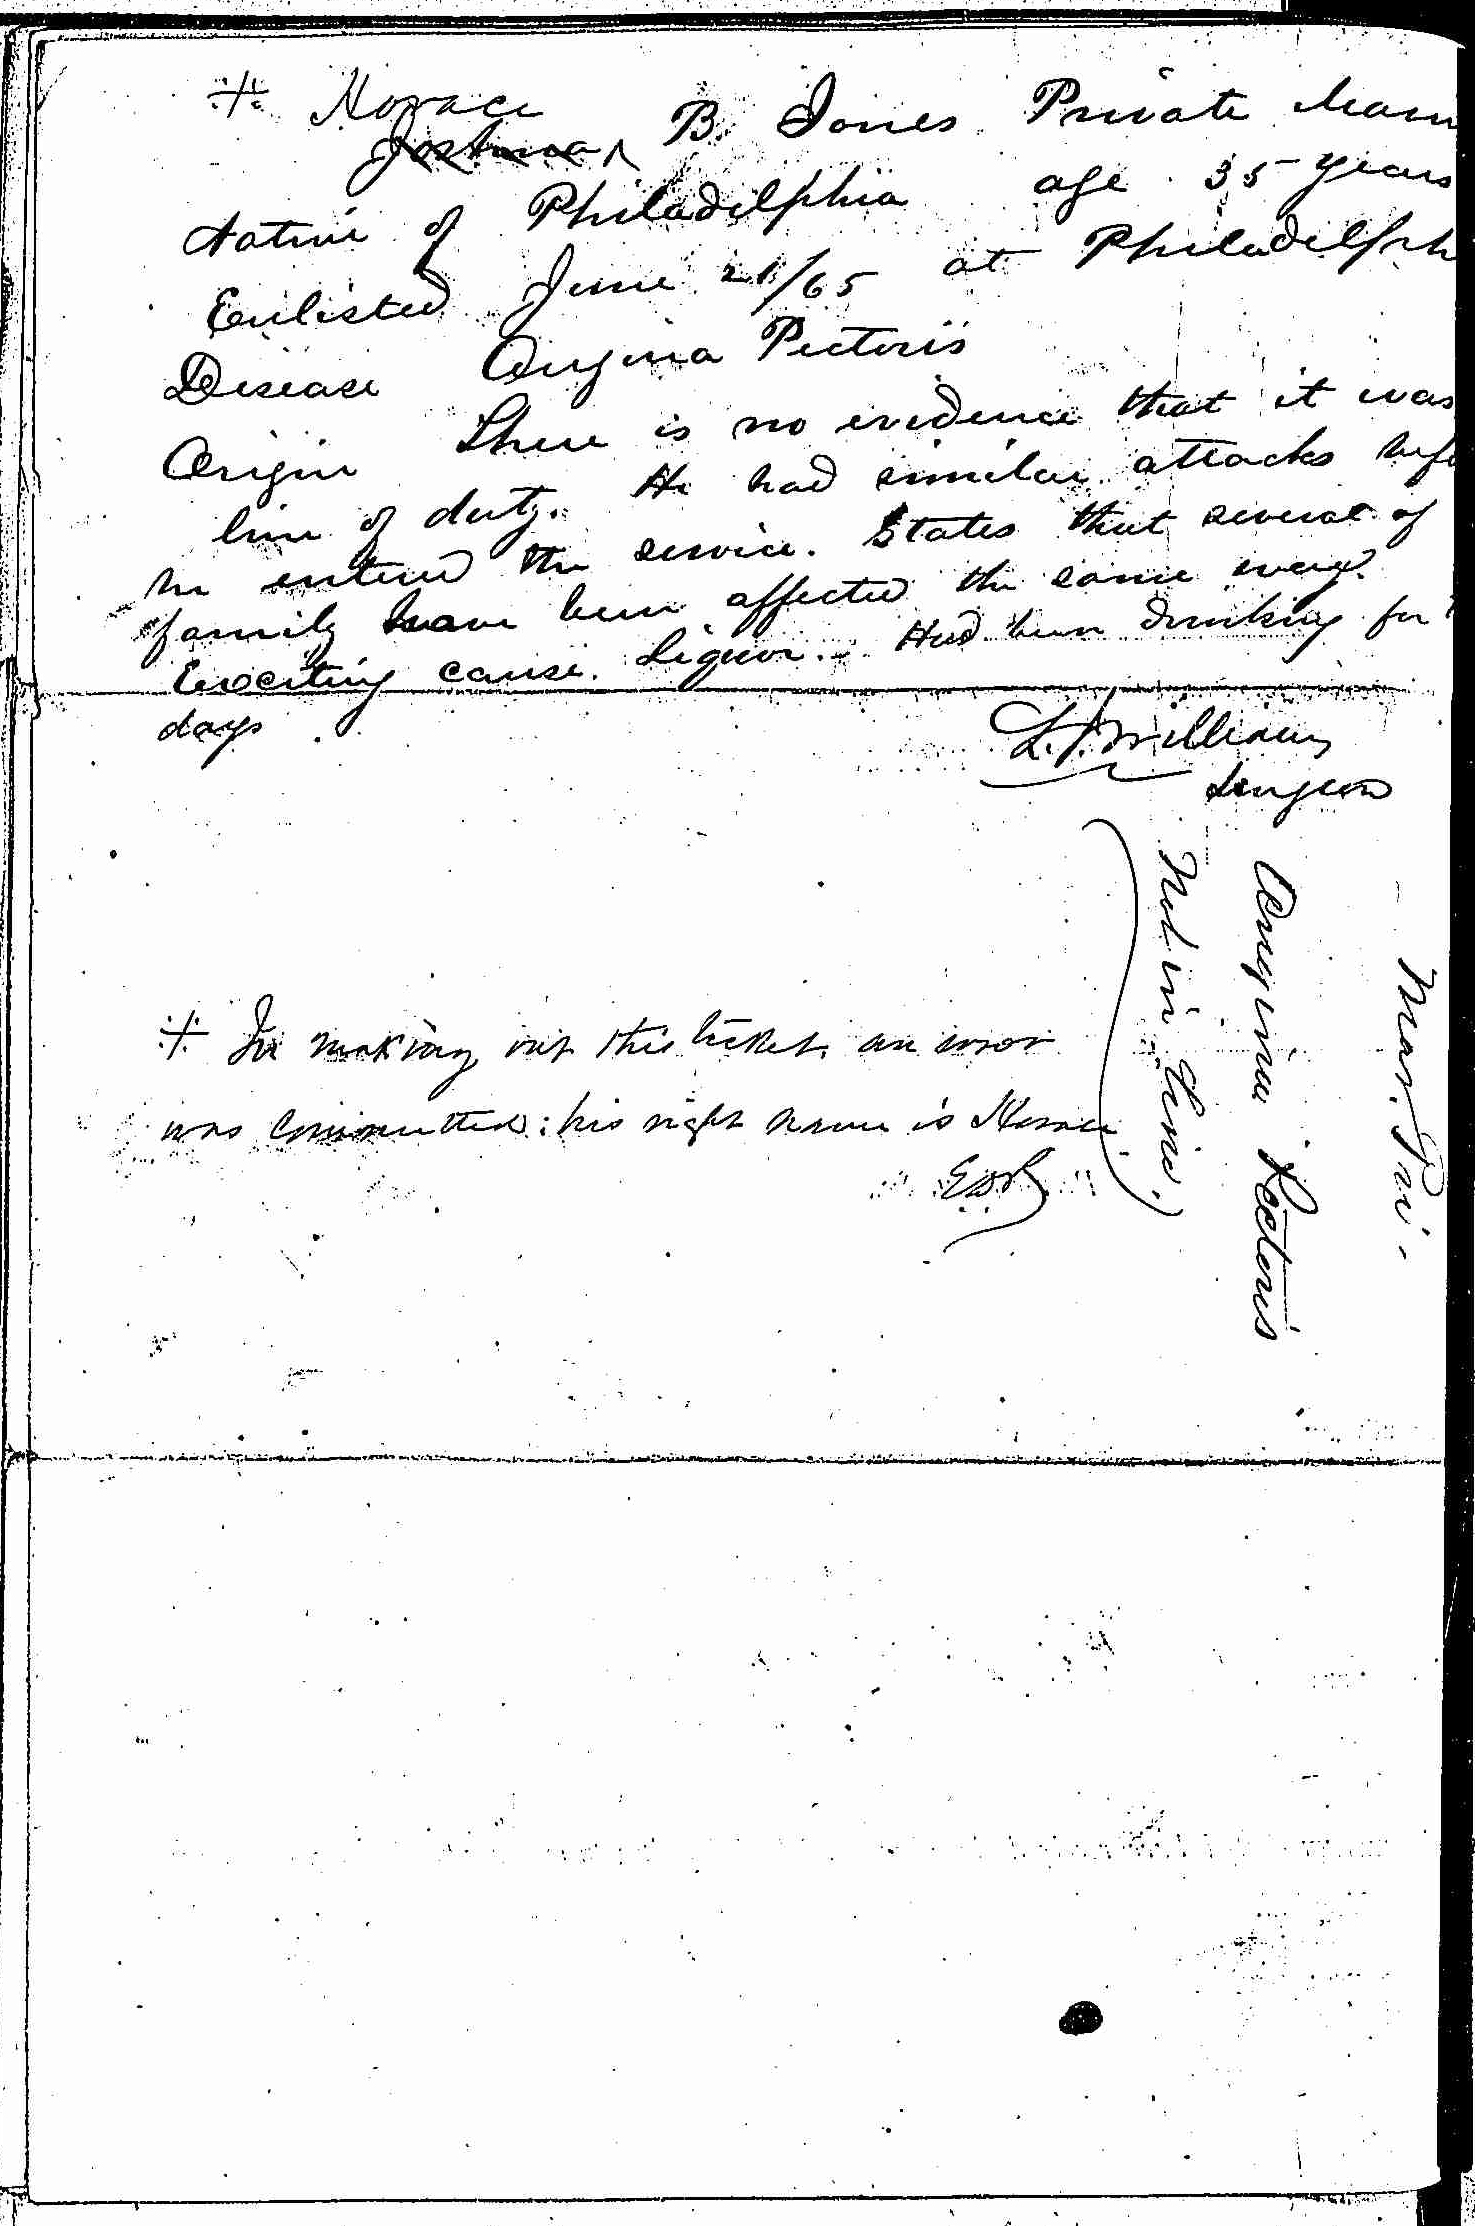 Horace
Joshua B. Jones Private Marin
Native of Philadelphia age 35 years
Enlisted June 21/65 at Philadelph
Disease Angina Pectoris
Origin There is no evidence that it was
line of duty. He had similar attacks befo
he entered the service. States that several of
family have been affected the same way.
Exciting cause. Liquor. Had been drinking for
days
L. J. Williams
Surgeon
Not in Line.
Angina Pectoris
Mar. Pri.
In making out this ticket, an error
was committed: his right name is Horace